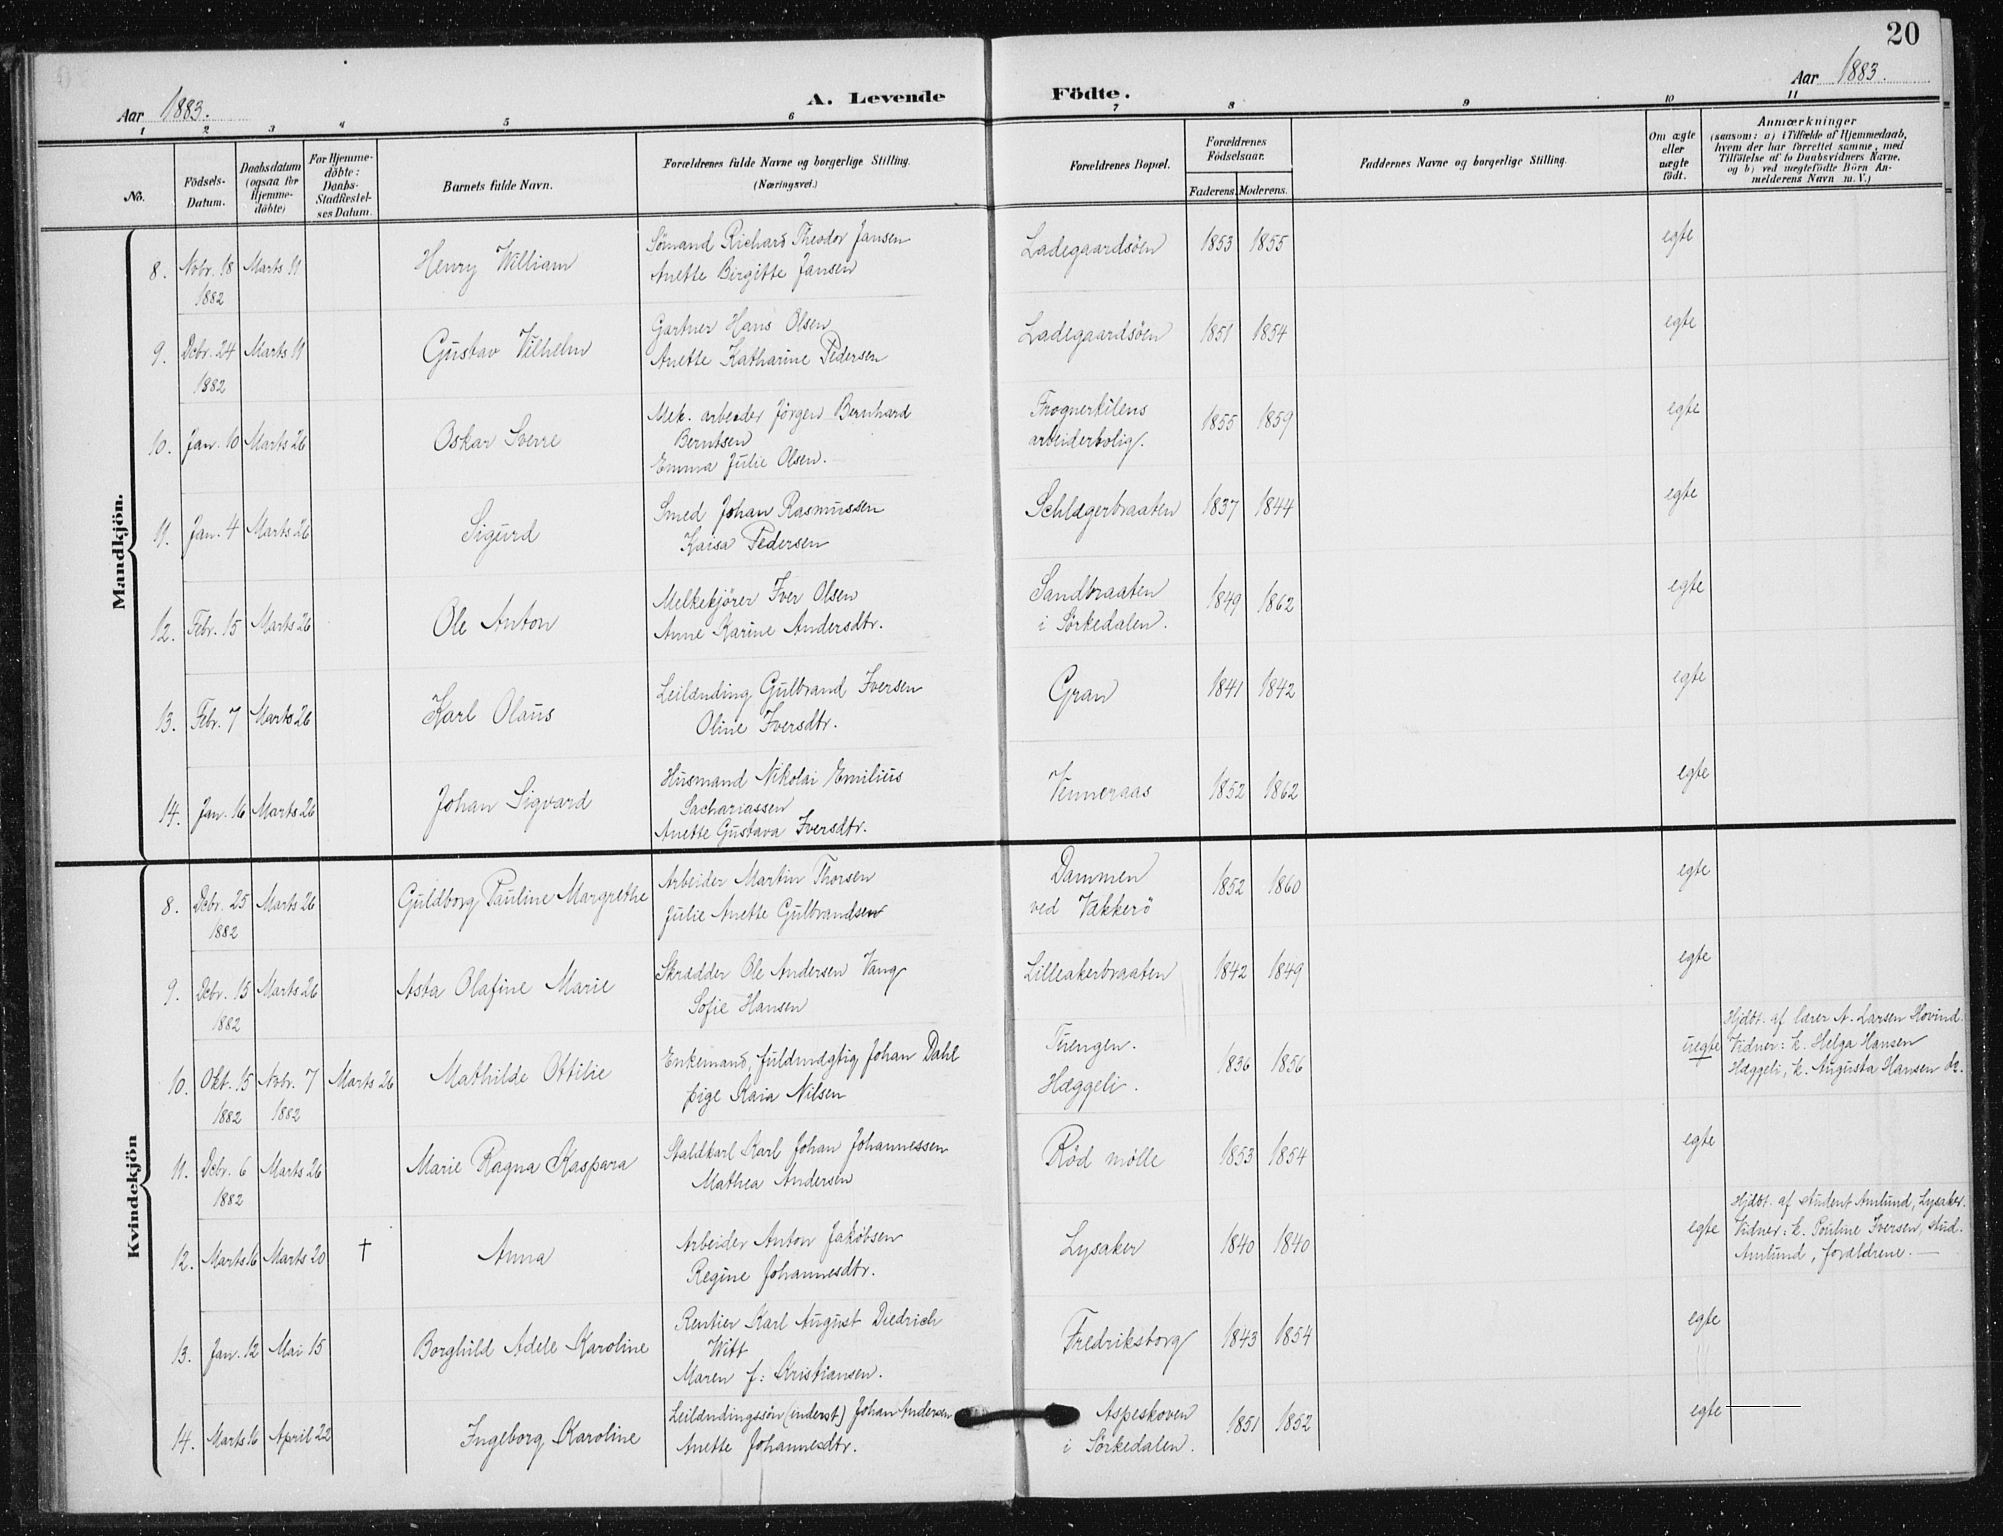 20
Aar 1883.
A. Levende
Födte.
Aar 1883.
1 2 3 4 5 6 7 8 9 10 11
No.
Födsels-
Datum.
Daabsdatum
(ogsaa for
Hjemme-
döbte)
For Hjemme-
döbte:
Daabs-
Stadfæstel-
ses Datum.
Barnets fulde Navn.
Forældrenes fulde Navne og borgerlige Stilling.
(Næringsvei.)
Forældrenes Bopæl.
Forældrenes
Födselsaar.
Faderens. Moderens.
Faddernes Navne og borgerlige Stilling.
Om ægte
eller
uægte
födt.
Anmærkninger
(saasom: a) i Tilfælde af Hjemmedaab,
hvem der har forrettet samme, med
Tilföielse af to Daabsvidners Navne,
og b) ved uægtefödte Börn An-
melderens Navn m. V.)
Mandkjön.
8. Nvbr. 18 Marts 11 Henry William
1882
Sömand Richard Theodor Jansen
Anette Birgitte Jansen
Ladegaardsöen 1853 1855 egte
9. Dcbr. 24 Marts 11 Gustav Vilhelm
1882
Gartner Hans Olsen
Anette Katharine Pedersen
Ladegaardsöen 1851 1854 egte
10. Jan. 10 Marts 26 Oskar Sverre
Mek. arbeider Jörgen Bernhard
Berntsen
Emma Julie Olsen.
Frognerkilens
arbeiderbolig. 1855 1859 egte
11. Jan. 4 Marts 26 Sigurd
Smed Johan Rasmussen
Kaisa Pedersen
Schlægerbraaten 1837 1844 egte
12. Febr. 15 Marts 26 Ole Anton
Melkekjörer Iver Olsen
Anne Karine Andersdtr.
Sandbraaten
i Sörkedalen. 1849 1862 egte
13. Febr. 7 Marts 26 Karl Olaus
Leilænding Gulbrand Iversen
Oline Iversdtr.
Gran 1841 1842 egte
14. Jan. 16 Marts 26 Johan Sigvard
Husmand Nikolai Emilius
Sachariassen
Anette Gustava Iversdtr.
Venneraas 1852 1862 egte
Kvindekjön
8. Dcbr. 25 Marts 26 Guldborg Pauline Margrethe
1882
Arbeider Martin Thorsen
Julie Anette Gulbrandsen
Dammen
ved Vækkerö 1852 1860 egte
9. Dcbr. 15 Marts 26 Asta Olafine Marie
1882
Skrædder Ole Andersen Vang
Sofie Hansen
Lilleakerbraaten 1842 1849 egte
10. Okt. 15 Nvbr. 7 Marts 26 Mathilde Ottilie
1882 1882
Enkemand, fuldmægtig Johan Dahl
pige Kaia Nilsen
Tuengen.
Hæggeli. 1836 1856 uegte
Hjdbt. af lærer A. Larsen Hovind.
Vidner: k. Helga Hansen
Hæggeli, k. Augusta Hansen do.
11. Dcbr. 6 Marts 26 Marie Ragna Kaspara
1882
Staldkarl Karl Johan Johannessen
Mathea Andersen
Röd mölle 1853 1854 egte
12. Marts 16 Marts 20 † Anna
Arbeider Anton Jakobsen
Regine Johannesdtr.
Lysaker 1840 1840 egte
Hjdbt. af student Amlund, Lysaker.
Vidner: k. Pouline Iversen, stud.
Amlund, forældrene. —
13. Jan. 12 Mai 15 Borghild Adele Karoline
Rentier Karl August Diedrich
Witt
Maren f: Kristiansen.
Fredriksborg 1843 1854 egte
14. Marts 16 April 22 Ingeborg Karoline
Leilændingssön (inderst) Johan Andersen
Anette Johannesdtr.
Aspeskoven
i Sörkedalen. 1851 1852 egte